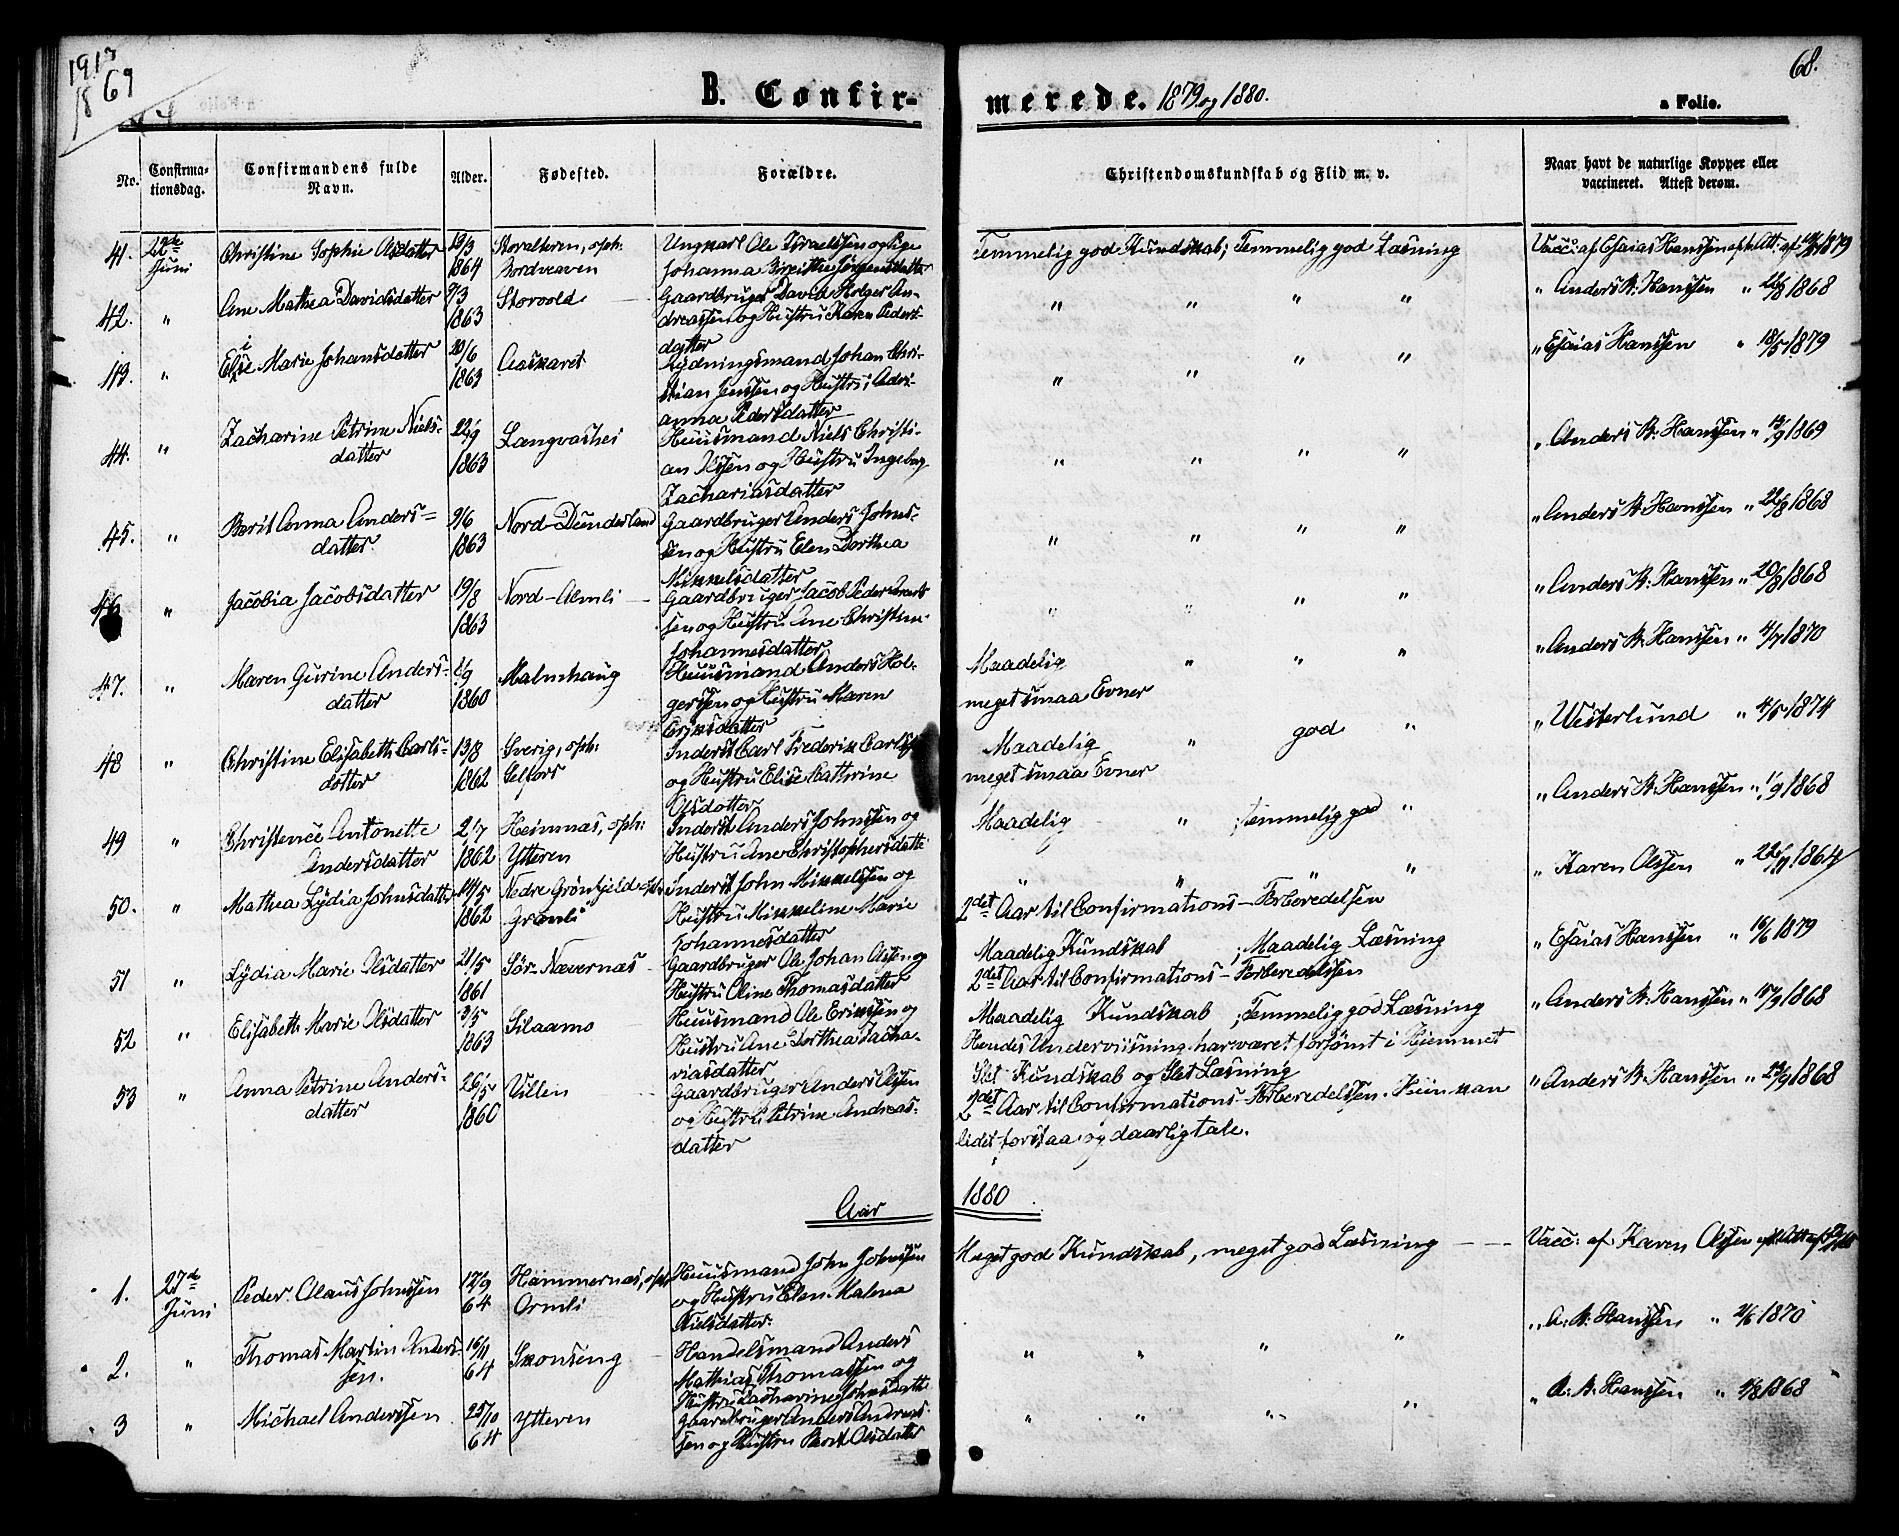 1913
1867
68.
B. Confir-
merede. 1879 og 1880.
a Folio.
No.
Confirma-
tionsdag.
Confirmandens fulde
Navn.
Alder.
Fødested.
Forældre.
Christendomskundskab og Flid m. v.
Naar havt de naturlige Kopper eller
vaccineret. Attest derom.
41. 22de Juni Christine Sophie Olsdatter 19/3 1864
Ungkarl Ole Israelssen og Pige
Johanna Birgitthe Jörgensdatter
Temmelig god Kundskab; Temmelig god Læsning
Vacc: af Esaias Hanssen
42. " Ane Mathea Davidsdatter 9/3 1863 Storvold
Gaardbruger David Holger An-
dreassen og Hustru Karen Peders-
datter
" " " "
" Anders B: Hanssen " 22/8 1868
43. " Marie Johansdatter 20/6 1863 Aaskaret
Lydningsmand Johan Chri-
stian Jenssen og Hustru Adri-
anna Pedersdatter
" " " "
" Esaias Hanssen " 18/5 1879
44. " Zacharine Petrine Niels-
datter 22/9 1863 Langvashei
Huusmand Niels Christi-
an Olssen og Hustru Ingeborg
Zachariasdatter
" " " "
" Anders B: Hanssen " 1869
45. " Berit Anna Anders=
datter 9/6 1863 Nord-Dunderland
Gaardbruger Anders Johns-
sen og Hustru Elen Dorthea
Mikkelsdatter
" " " "
" Anders B: Hanssen " 22/8 1868
46 " Jacobia Jacobsdatter 19/8 1863 Nord-Almli
Gaardbruger Jacob Peder
sen og Hustru Ane Christine
Johannesdatter
" " " "
" Anders B: Hanssen " 20/8 1868
47. " Maren Gurine Anders-
datter 1860 Malmhaug
Huusmand Anders Hol-
gerssen og Hustru Maren
Eriksdatter
Maadelig " " "
meget smaa Evner
" Anders B: Hanssen " 4/7 1870
48 " Christine Elisabeth Carls-
datter 13/8 1862 Sverig, oph:
Inderst Carl Frederik Carlss
og Hustru Elise Cathrine
Olsdatter
Maadelig " god "
meget smaa Evner
" Westerlund " 4/5 1874
49 " Christence Antonette
Andersdatter 2/7 1862 Heimnæs, oph:
Ytteren
Inderst Anders Johnssen og
Hustru Ane Christophersdatte
Maadelig " ; temmelig god "
" Anders B: Hanssen " 1/9 1868
50. " Mathea Lydia Johnsdatter 1862 Nedre Grönfjeld
Inderst John Mikkelssen og
Hustru Mikkeline Marie
Johannesdatter
" " " "
2det Aar til Confirmations-Forberedelsen
" Karen Olssen " 1864
51 " Lydia Marie Olsdatter 21/5 1861 Sör. Nævernæs
Gaardbruger Ole Johan Olssen og
Hustru Oline Thomasdatter
Maadelig Kundskab ; Maadelig Læsning
2det Aar til Confirmations-Forberedelsen
" Esaias Hanssen " 16/6 1879
52 " Elisabeth Marie Olsdatter 3/5 1863 Silaamo
Huusmand Ole Erikssen og
Hustru Ane Dorthea Zacha-
riasdatter
Maadelig Kundskab ; Temmelig god Læsning
Hendes Underviisning har været forsömt i Hjemmet
" Anders B: Hanssen " 15/9 1868
53 " Anna Petrine Anders-
datter 26/5 1860
Gaardbruger Anders Olssen
og Hustru Petrine Andreas-
datter
Slet Kundskab og Slet Læsning
2det Aar til Confirmations-Forberedelsen. Hun kan
lidet forstaa og daarlig tale.
" Anders B: Hanssen " 1868
Aar 1880
1. 27de Juni Peder Olaus Johnssen 12/9 64 Hammernæs, oph
Ormli
Huusmand John Johnssen
og Hustru Elen Malena
Nielsdatter.
Meget god Kundskab, meget god Læsning
Vacc: af Karen Olssen
2. " Thomas Martin Anders-
sen. 16/11 64 Skonseng
Handelsmand Anders
Mathias Thomassen og
Hustru Zacharine Johnsdatte
" " " "
" A. B. Hanssen " 2/6 1870
3 " Michael Anderssen 25/10 64 Ytteren
Gaardbruger Anders Andreas-
sen og Hustru Berit Olsdatter
" " " "
" A. B. Hanssen " 4/8 1868